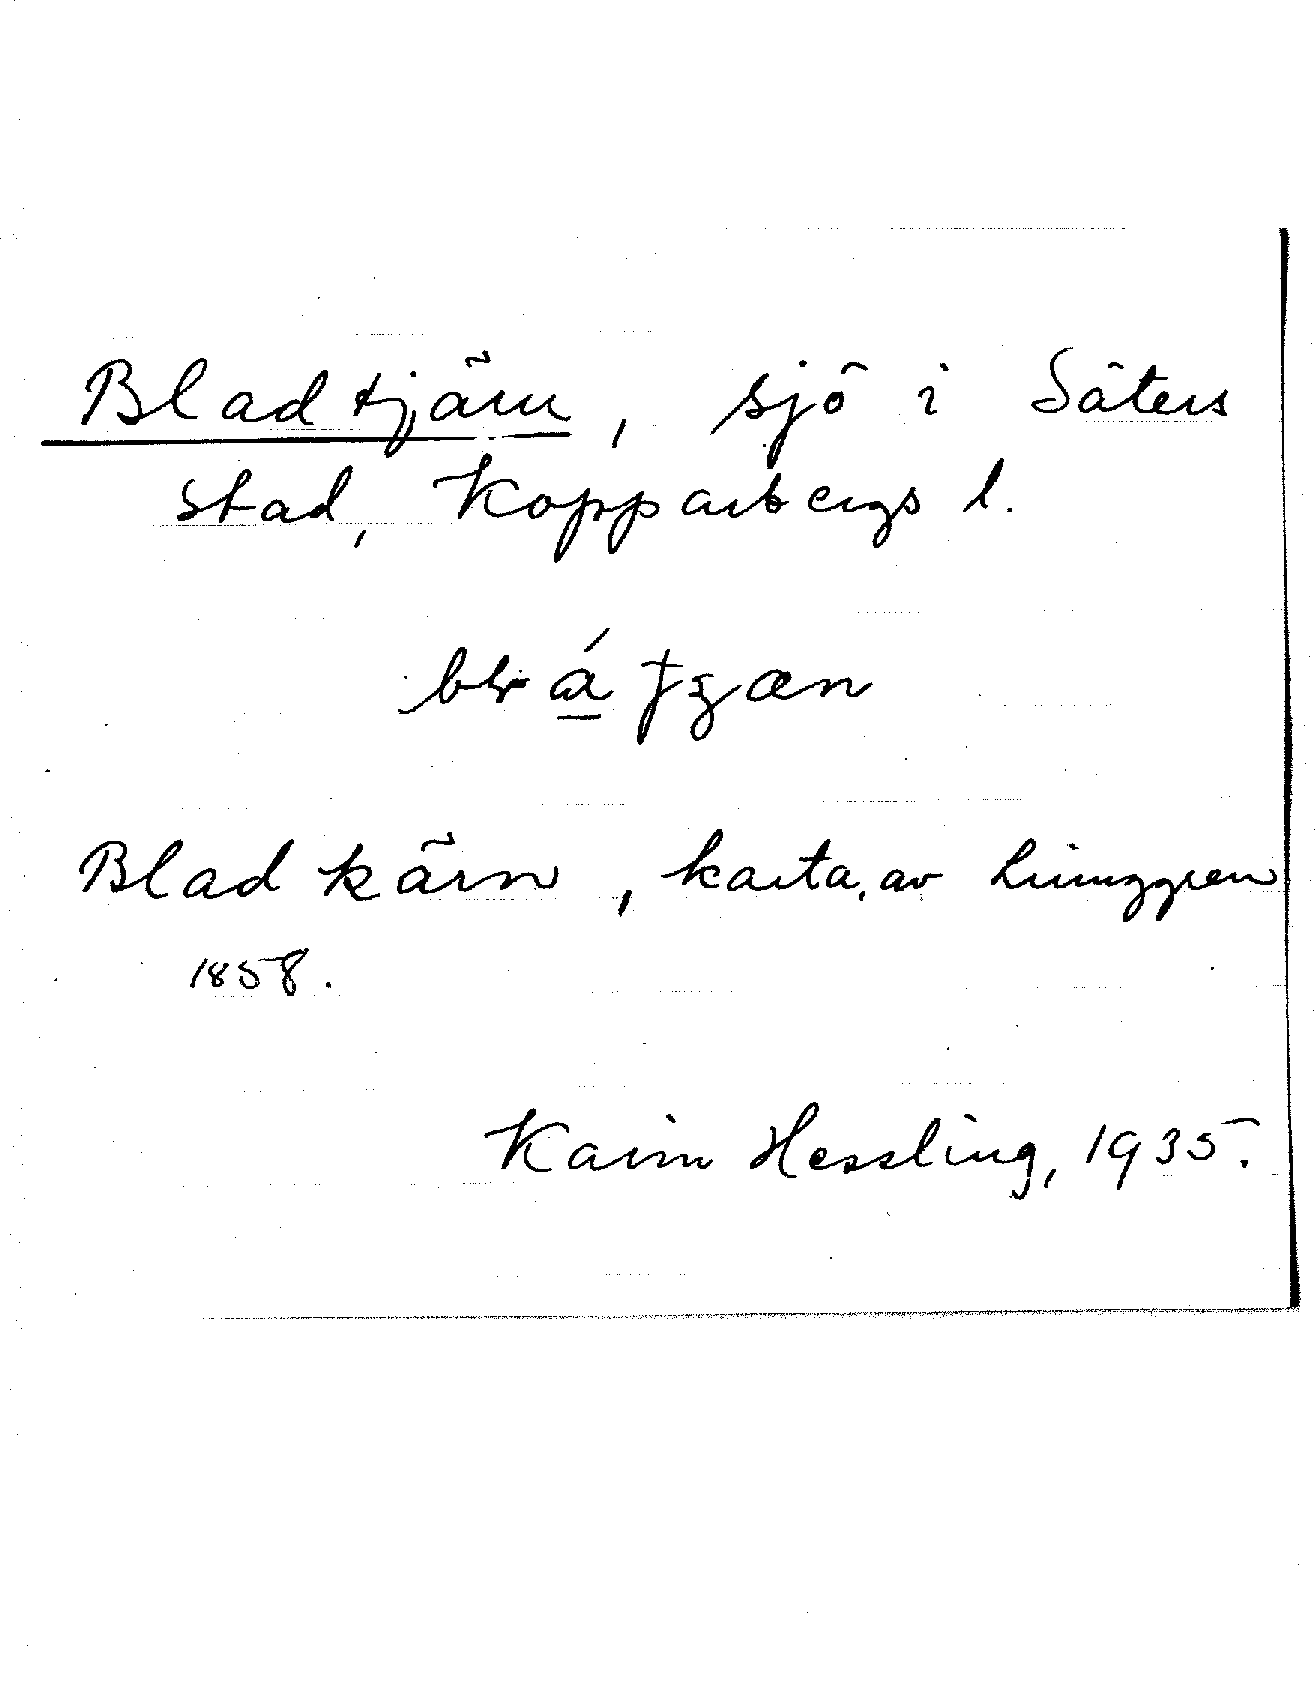 Bladtjärn, sjö i Säters
stad, Kopparbergs l.
Bladkärn, karta av Ljunggren
1858.
Karin Hessling, 1935.